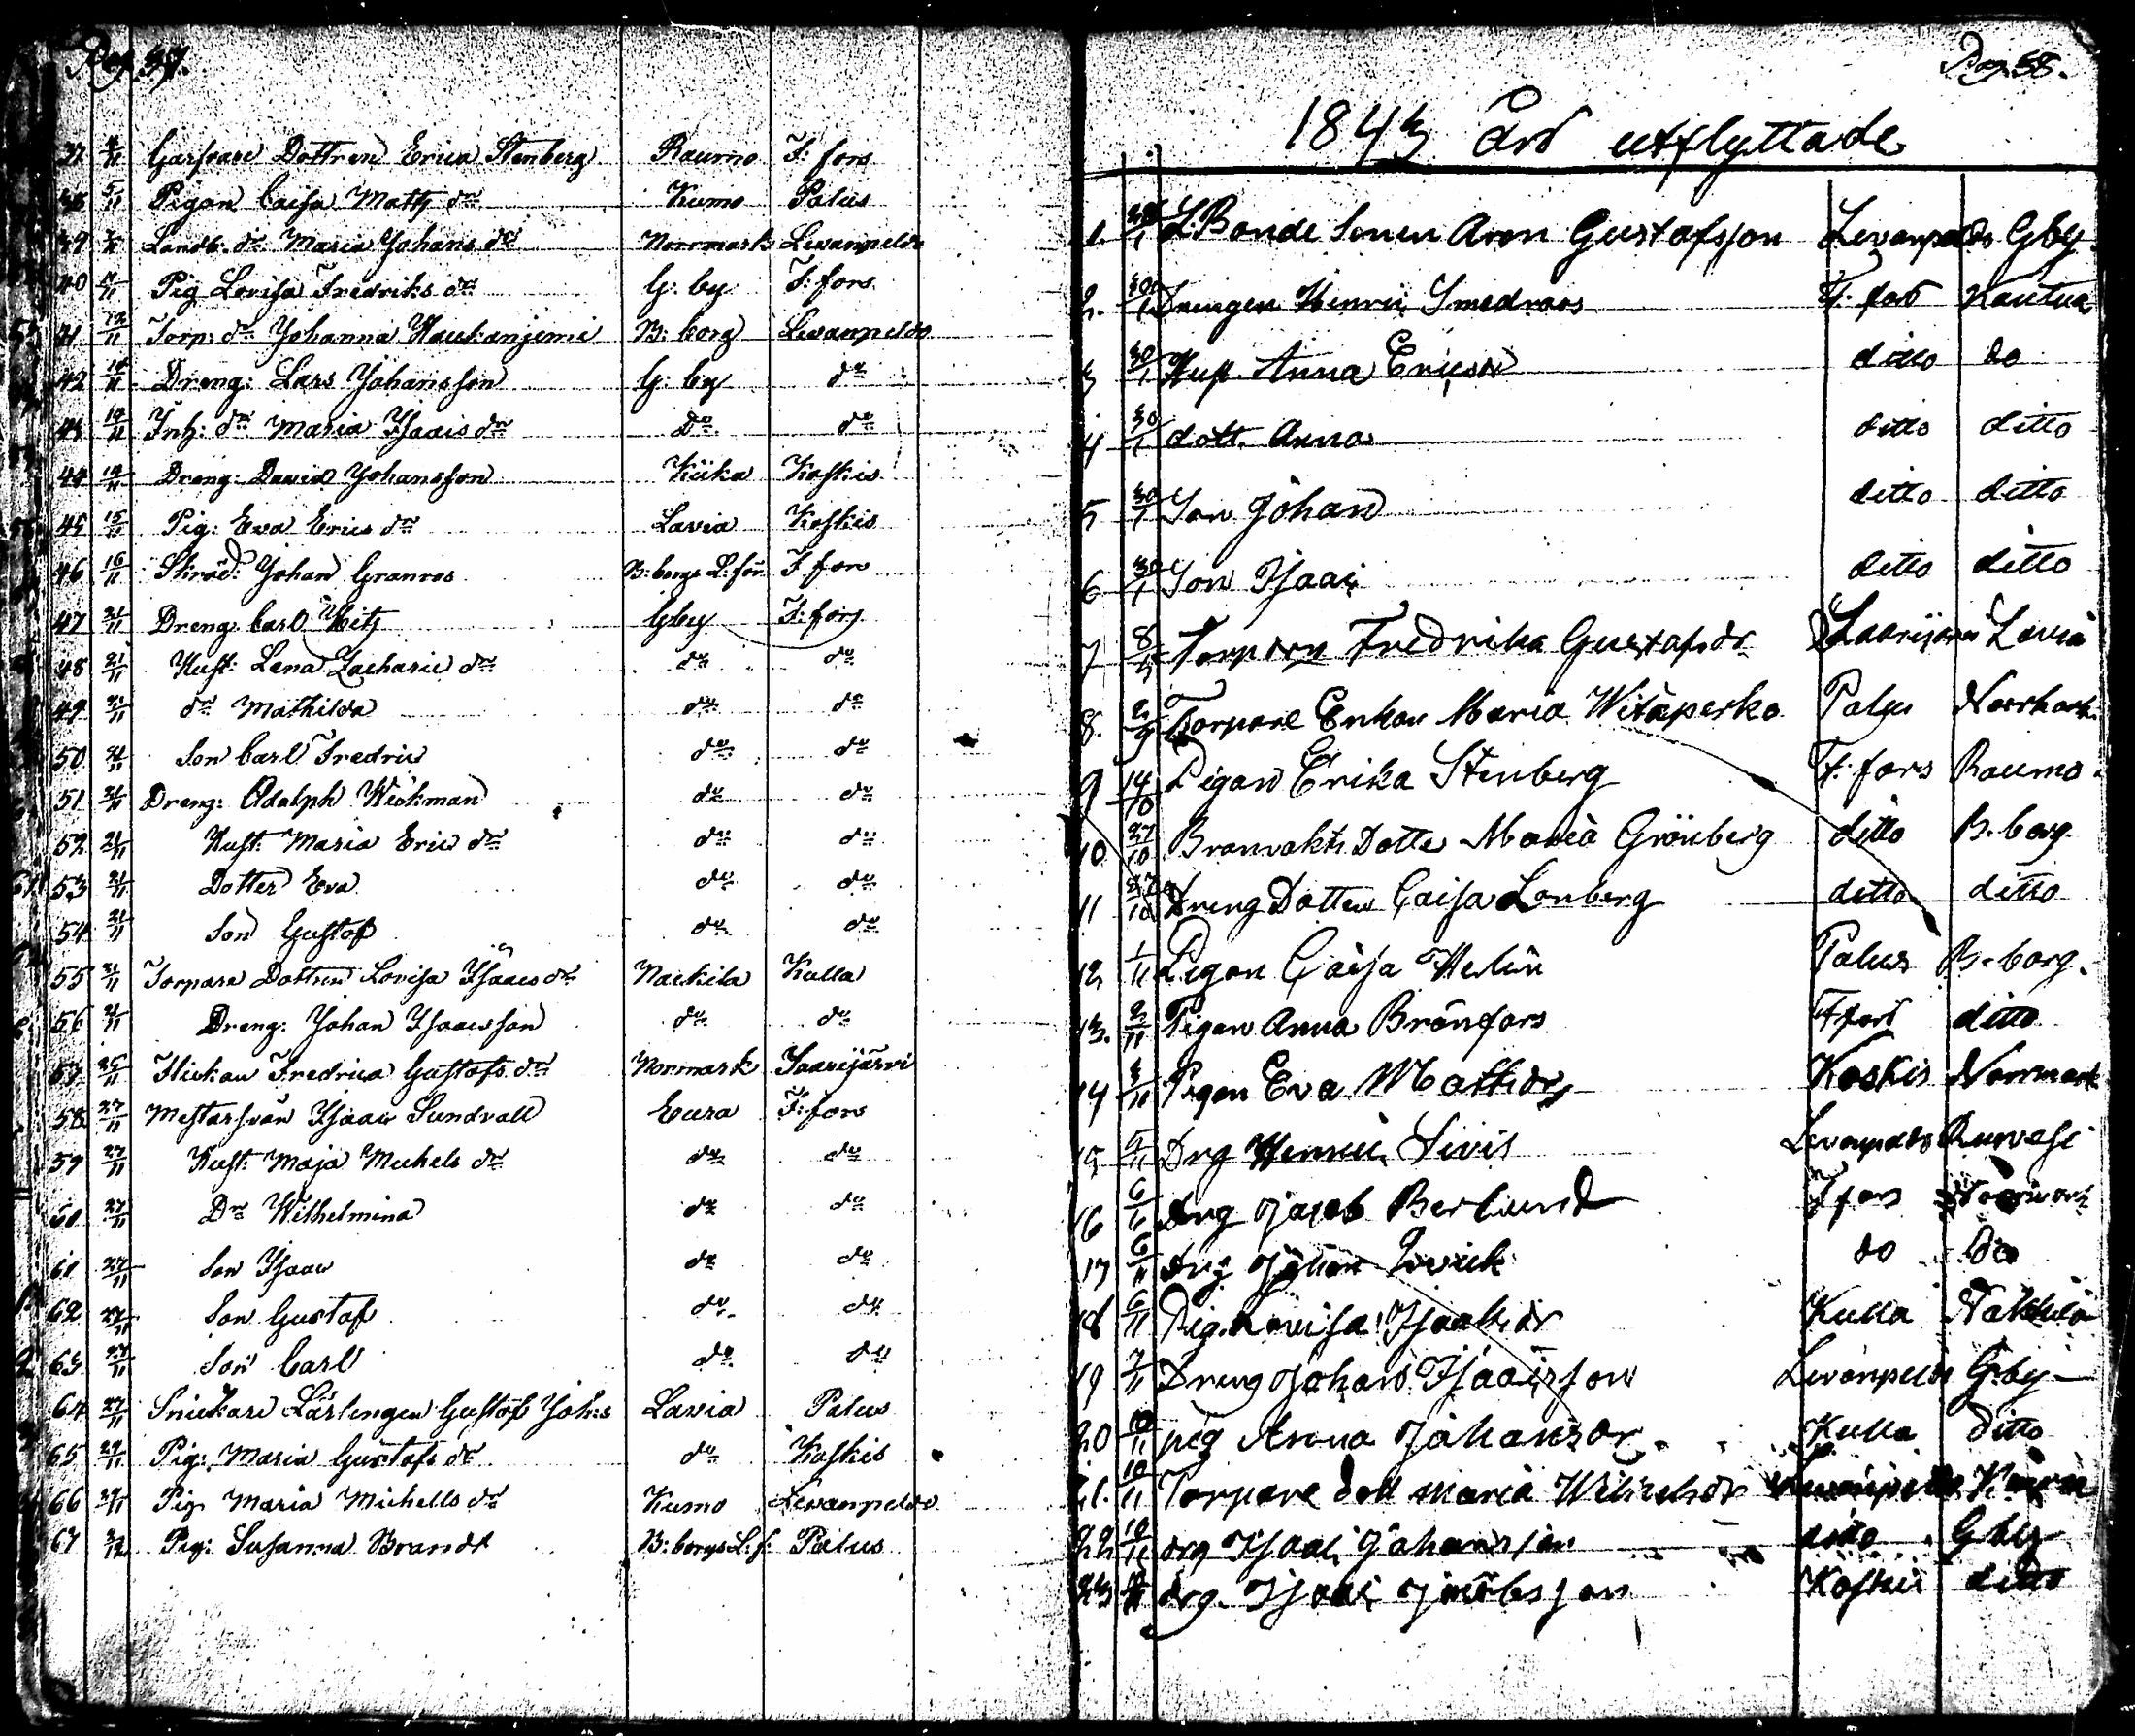 Pag. 57.
37 4/11 Garfvare Dottren Erica Stenberg Raumo F: fors
38 5/11 Pigan Caisa Matts dr Kumo Palus
39 Landb. dr Maria Johans dr Norrmark Levanpeldo
40 Pig Lovisa Fredriks dr G: by F: fors
41 12/11 Torp: dr Johanna Haukanjemi B: borg Levanpeldo
42 Dreng: Lars Johansson G: by do
43 Inh: dr Maria Isacs dr Do do
44 Dreng: David Johansson Kiika Koskis
45 15/11 Pig: Eva Erics dr Lavia Koskis
46 16/11 Skräd: Johan Granroos B: borgs L: för F fors
47 21/11 Dreng Carl Hitz Gby F: fors
48 21/11 Hust: Lena Zacharie dr do do
49 21/11 dr Mathilda do do
50 21/11 Son Carl Fredric do do
51 21/11 Dreng: Adolph Wickman do do
52 21/11 Hust: Maria Eric dr do do
53 21/11 Dotter Eva do do
54 21/11 Son Gustaf do do
55 21/11 Torpare Dottren Lovisa Isaacs dr Nackila Kulla
56 21/11 Dreng: Johan Isaacsson do do
57 25/11 Flickan Fredrica Gustafs dr Norrmark Saarijärvi
58 27/11 Mestarsvän Isaac Sundvall Eura F: fors
59 27/11 Hust: Maja Michels dr do do
60 27/11 Dr Wilhelmina do do
61 27/11 Son Isaac do do
62 27/11 Son Gustaf do do
63 27/11 Son Carl do do
64 27/11 Snickare Lärlingen Gustaf Johs Lavia Palus
65 29/11 Pig: Maria Gustafs dr do Koskis
66 Pig Maria Michells dr Kumo Levanpeldo
67 Pig: Susanna Brandt B: borgs L. f: Palus
Pag. 58.
1843 års utflyttade
1. 30/1 L. Bonde Sonen Aron Gustafsson Levanpeldo Gby
2. 30/1 Drengen Henric Smedroos F: fors Kautua
3 30/1 Hust. Anna Ericsdr ditto do
4 30/1 dott. Anna ditto ditto
5 30/1 Son Johan ditto ditto
6 30/1 Son Isaac ditto ditto
7 Torp dren Fredrika Gustafsdr Saarijärvi Lavia
8. Torpare Enkan Maria Witaperko Palus Norrmark
9 14/10 Pigan Erika Stenberg F: fors Raumo
10 27/10 Dotter Maria Grönberg ditto B. borg.
11 27/10 Dreng Dotter Caisa Lonberg ditto ditto
12 1/11 Pigan Caisa Herlin Palus B. borg.
13. 2/11 Pigan Anna Brönfors F fors ditto
14 Pigan Eva Mattsdr Koskis Norrmark
15 5/11 Drg Henric Levanpeldo Ruovesi
16 6/11 Drg Jacob Berlund F fors Norrmark
17 6/11 Drg Johan do do
18 6/11 Pig. Lovisa Isaaksdr Kulla Nakkila
19 7/11 Dreng Johan Isaacsson Levanpeldo G. by
20 10/11 pig Anna Johansdr Kulla ditto
21. 10/11 Torpare dott Maria
22 10/11 drg Isaac Johansson ditto Gby
23 drg. Isaac Jacobsson Koskis ditto